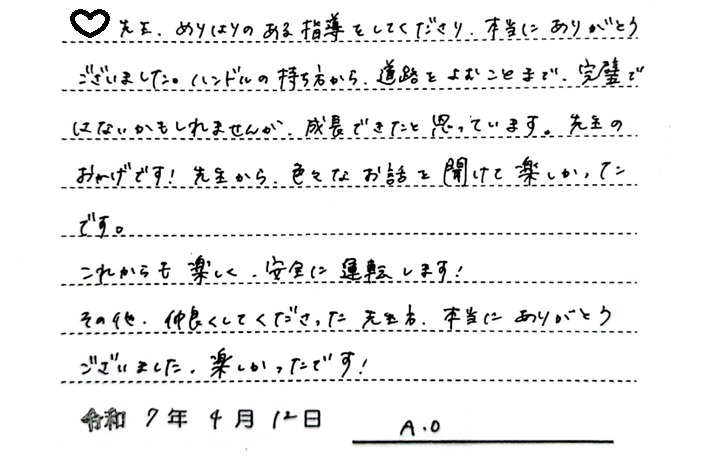 ♡先生、めりはりのある指導をしてくださり、本当にありがとう
ございました。ハンドルの持ち方から、道路をよむことまで、完璧で
はないかもしれませんが、成長できたと思っています。先生の
おかげです！先生から、色々なお話を聞けて楽しかったん
です。
これからも楽しく、安全に運転します！
その他、仲良くしてくださった先生方、本当にありがとう
ございました、楽しかったです！
令和7年4月12日 A.O